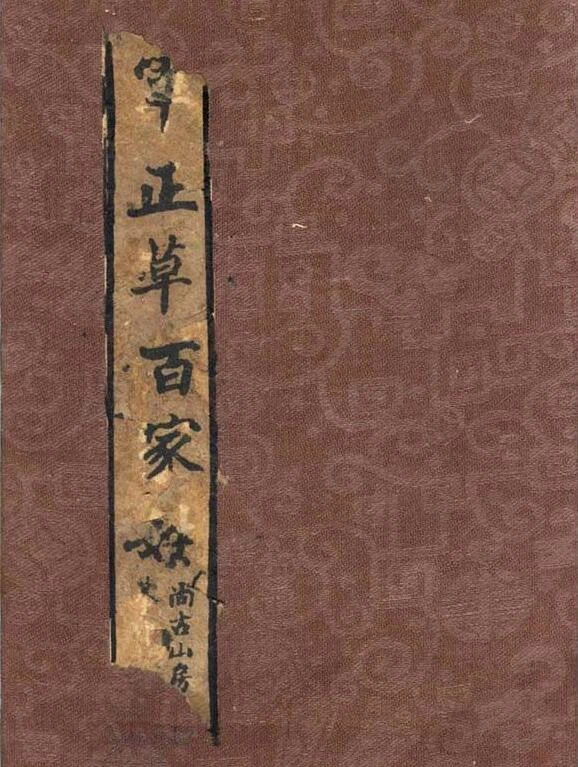 正草百家姓
尚古山房